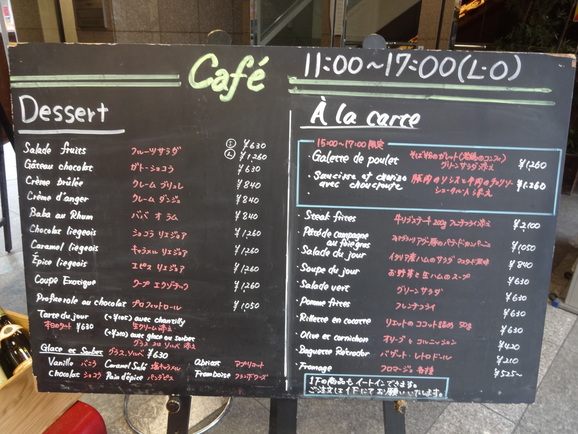 Café
11:00~17:00(L.O)
Dessert
Salade fruits フルーツサラダ ① ¥630
② ¥1,260
Gâteau chocolat ガトーショコラ ¥630
Crème brûlée クレームブリュレ ¥840
Crème d'anger クレームダンジュ ¥840
Baba au Rhum ババオラム ¥840
Chocolat liegeois ショコラリエジョア ¥1,260
Caramel liegeois キャラメルリエジョア ¥1,260
Épice liegeois エピスリエジョア ¥1,260
Coupe Exotique クープエクゾチック ¥1,260
Profiterole au chocolat プロフィトロール ¥1,050
Tarte du jour (+¥105) avec chantilly
本日のタルト ¥630 生クリーム添え
(+¥210) avec glace ou sorbet
グラス ソルベ添え
Glace et Sorbet グラス、ソルベ ¥630
Vanille バニラ Caramel Salé 塩キャラメル Abricot アプリコット
Chocolat ショコラ Pain d'épice パンデピス Framboise フランボワーズ
À la carte
15:00~17:00限定
・Galette de poulet そば粉のガレット(若鶏のコンフィ)
グリーンサラダ添え ¥1,260
・Saucisse et chorizo
avec choucroute ¥1,260
・Steak frites 牛リブステーキ 200g フレンチフライ添え ¥2,100
・Pâté de campagne
au foie gras ¥1050
・Salade du jour ¥840
・Soupe du jour お野菜と生ハムのスープ ¥630
・Salade vert グリーンサラダ ¥630
・Pomme frites フレンチフライ ¥630
・Rillette en cocotte リエットのココット詰め 50g ¥630
・Olive et cornichon オリーブとコルニッション ¥420
・Baguette Retrodor バゲットレトロドール ¥210
・Fromage フロマージュ各種 ¥525~
1Fの商品もイートインできます。
ご注文は1Fにてお願いいたします。